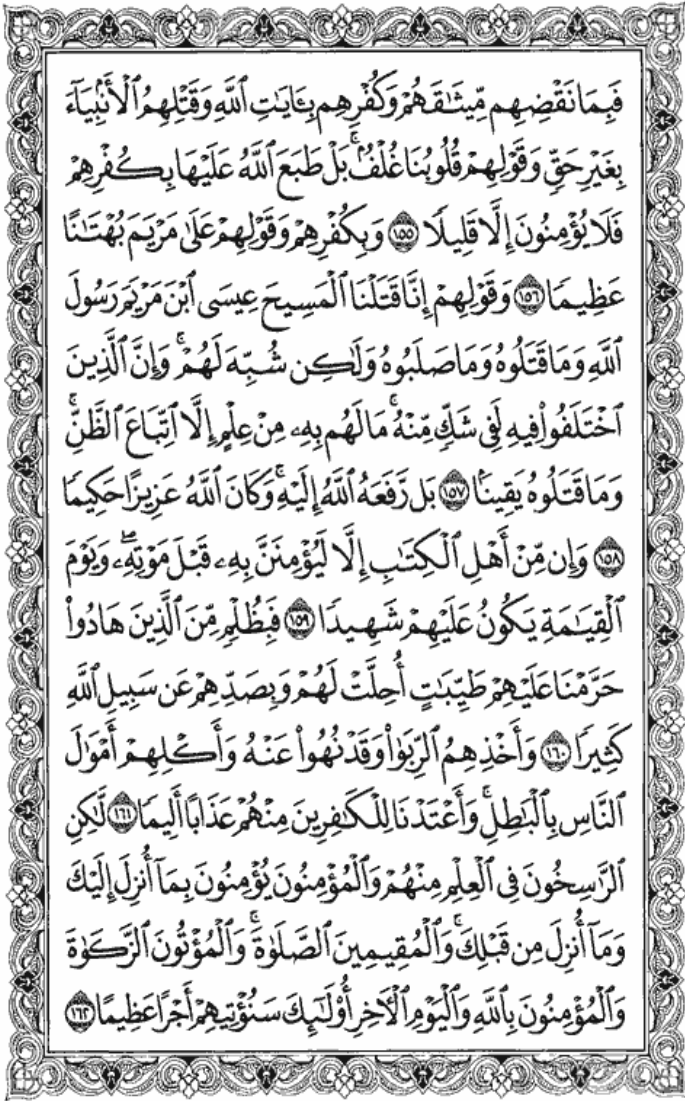 فَبِمَا نَقْضِهِم مِّيثَٰقَهُمْ وَكُفْرِهِم بِـَٔايَٰتِ ٱللَّهِ وَقَتْلِهِمُ ٱلْأَنۢبِيَآءَ
بِغَيْرِ حَقٍّ وَقَوْلِهِمْ قُلُوبُنَا غُلْفٌۢ ۚ بَلْ طَبَعَ ٱللَّهُ عَلَيْهَا بِكُفْرِهِمْ
فَلَا يُؤْمِنُونَ إِلَّا قَلِيلًا ١٥٥ وَبِكُفْرِهِمْ وَقَوْلِهِمْ عَلَىٰ مَرْيَمَ بُهْتَٰنًا
عَظِيمًا ١٥٦ وَقَوْلِهِمْ إِنَّا قَتَلْنَا ٱلْمَسِيحَ عِيسَى ٱبْنَ مَرْيَمَ رَسُولَ
ٱللَّهِ وَمَا قَتَلُوهُ وَمَا صَلَبُوهُ وَلَٰكِن شُبِّهَ لَهُمْ ۚ وَإِنَّ ٱلَّذِينَ
ٱخْتَلَفُوا۟ فِيهِ لَفِى شَكٍّ مِّنْهُ ۚ مَا لَهُم بِهِۦ مِنْ عِلْمٍ إِلَّا ٱتِّبَاعَ ٱلظَّنِّ ۚ
وَمَا قَتَلُوهُ يَقِينًۢا ١٥٧ بَل رَّفَعَهُ ٱللَّهُ إِلَيْهِ ۚ وَكَانَ ٱللَّهُ عَزِيزًا حَكِيمًا
١٥٨ وَإِن مِّنْ أَهْلِ ٱلْكِتَٰبِ إِلَّا لَيُؤْمِنَنَّ بِهِۦ قَبْلَ مَوْتِهِۦ ۖ وَيَوْمَ
ٱلْقِيَٰمَةِ يَكُونُ عَلَيْهِمْ شَهِيدًا ١٥٩ فَبِظُلْمٍ مِّنَ ٱلَّذِينَ هَادُوا۟
حَرَّمْنَا عَلَيْهِمْ طَيِّبَٰتٍ أُحِلَّتْ لَهُمْ وَبِصَدِّهِمْ عَن سَبِيلِ ٱللَّهِ
كَثِيرًا ١٦٠ وَأَخْذِهِمُ ٱلرِّبَوٰا۟ وَقَدْ نُهُوا۟ عَنْهُ وَأَكْلِهِمْ أَمْوَٰلَ
ٱلنَّاسِ بِٱلْبَٰطِلِ ۚ وَأَعْتَدْنَا لِلْكَٰفِرِينَ مِنْهُمْ عَذَابًا أَلِيمًا ١٦١ لَّٰكِنِ
ٱلرَّٰسِخُونَ فِى ٱلْعِلْمِ مِنْهُمْ وَٱلْمُؤْمِنُونَ يُؤْمِنُونَ بِمَآ أُنزِلَ إِلَيْكَ
وَمَآ أُنزِلَ مِن قَبْلِكَ ۚ وَٱلْمُقِيمِينَ ٱلصَّلَوٰةَ ۚ وَٱلْمُؤْتُونَ ٱلزَّكَوٰةَ
وَٱلْمُؤْمِنُونَ بِٱللَّهِ وَٱلْيَوْمِ ٱلْـَٔاخِرِ أُو۟لَٰٓئِكَ سَنُؤْتِيهِمْ أَجْرًا عَظِيمًا ١٦٢